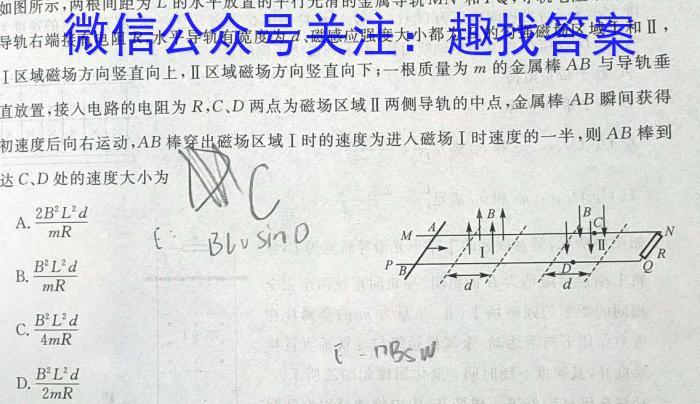 如图所示,两根间距为 L 的水平放置的平行光滑的金属导轨 MN 和 PQ,导轨电阻
微信公众号关注：趣找答案
导轨右端接 电阻 R,水平导轨有宽度为 d、磁感应强度大小都为 的匀强磁场区域Ⅰ和Ⅱ,
Ⅰ区域磁场方向竖直向上,Ⅱ区域磁场方向竖直向下;一根质量为 m 的金属棒 AB 与导轨垂
直放置,接入电路的电阻为 R,C、D 两点为磁场区域Ⅱ两侧导轨的中点,金属棒 AB 瞬间获得
初速度后向右运动,AB 棒穿出磁场区域Ⅰ时的速度为进入磁场Ⅰ时速度的一半,则 AB 棒到
达 C、D 处的速度大小为
C
A. 2B²L²d/mR
E: BLvsinθ
B. B²L²d/mR
C. B²L²d/4mR
D. B²L²d/2mR
E = nBSW
M A B B C N
Ⅰ Ⅱ R
P B D Q
d d